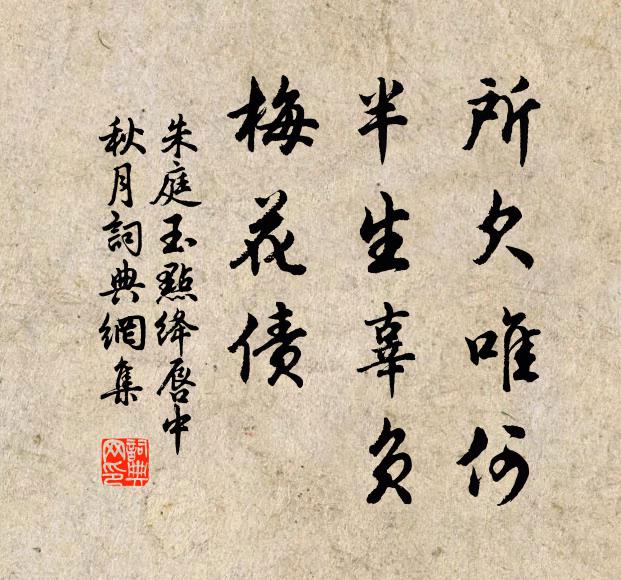 所欠唯何
半生辜负
梅花债
朱庭玉點绛唇中
秋月詞典網集
詞典
网印